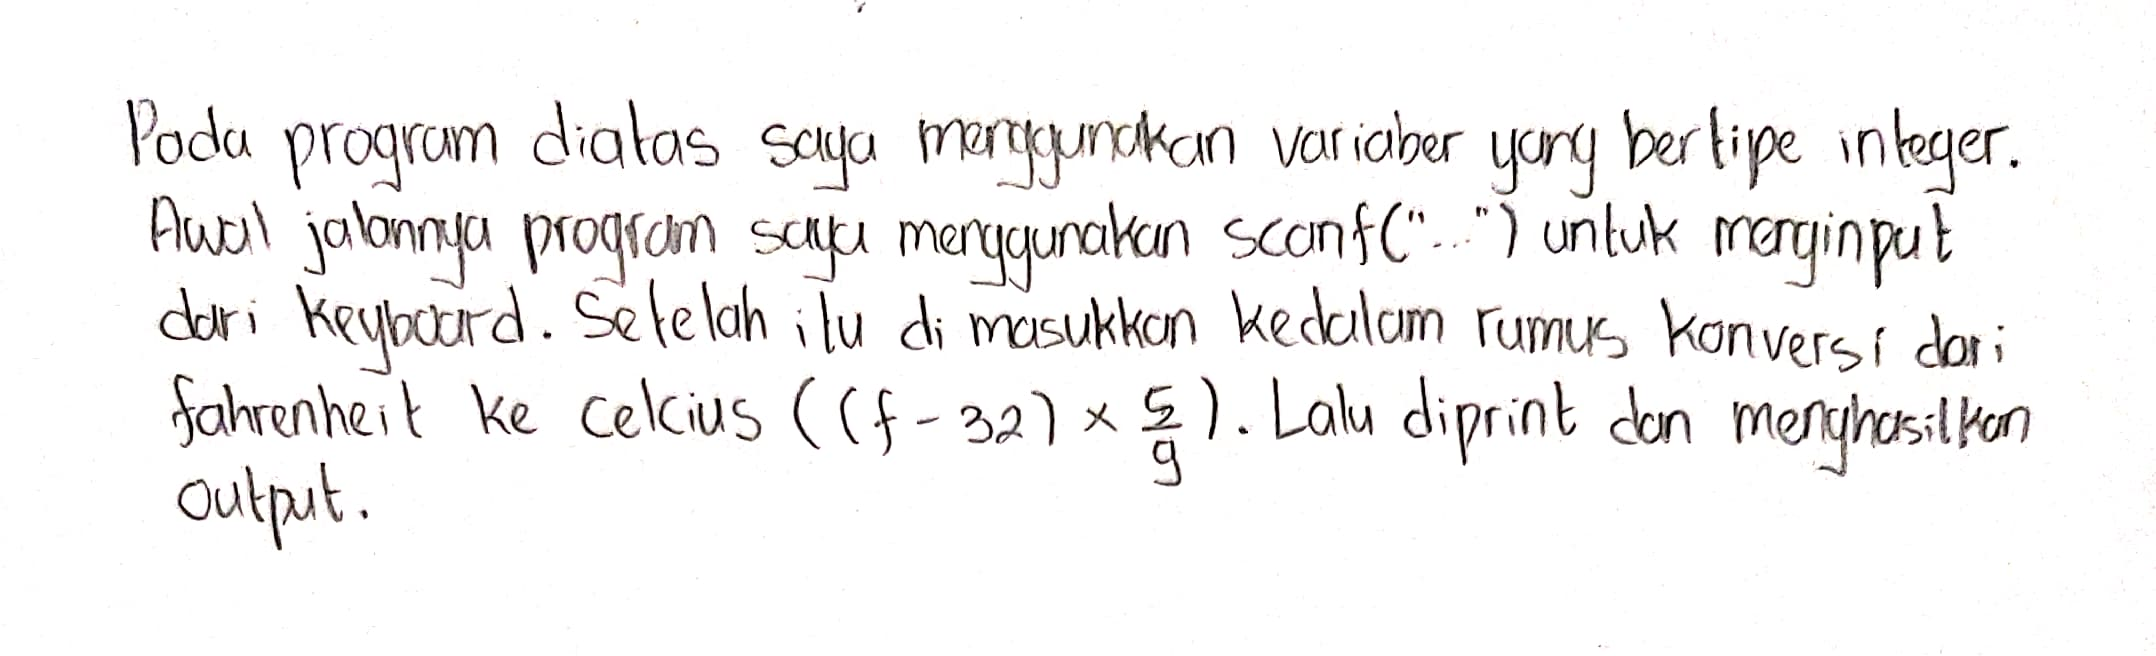 Pada program diatas saya menggunakan variaber yang bertipe integer.
Awal jalannya program saya menggunakan scanf("...") untuk menginput
dari keyboard. Setelah itu di masukkan kedalam rumus konversi dari
fahrenheit ke celcius ((f - 32) × 5/9). Lalu diprint dan menghasilkan
output.